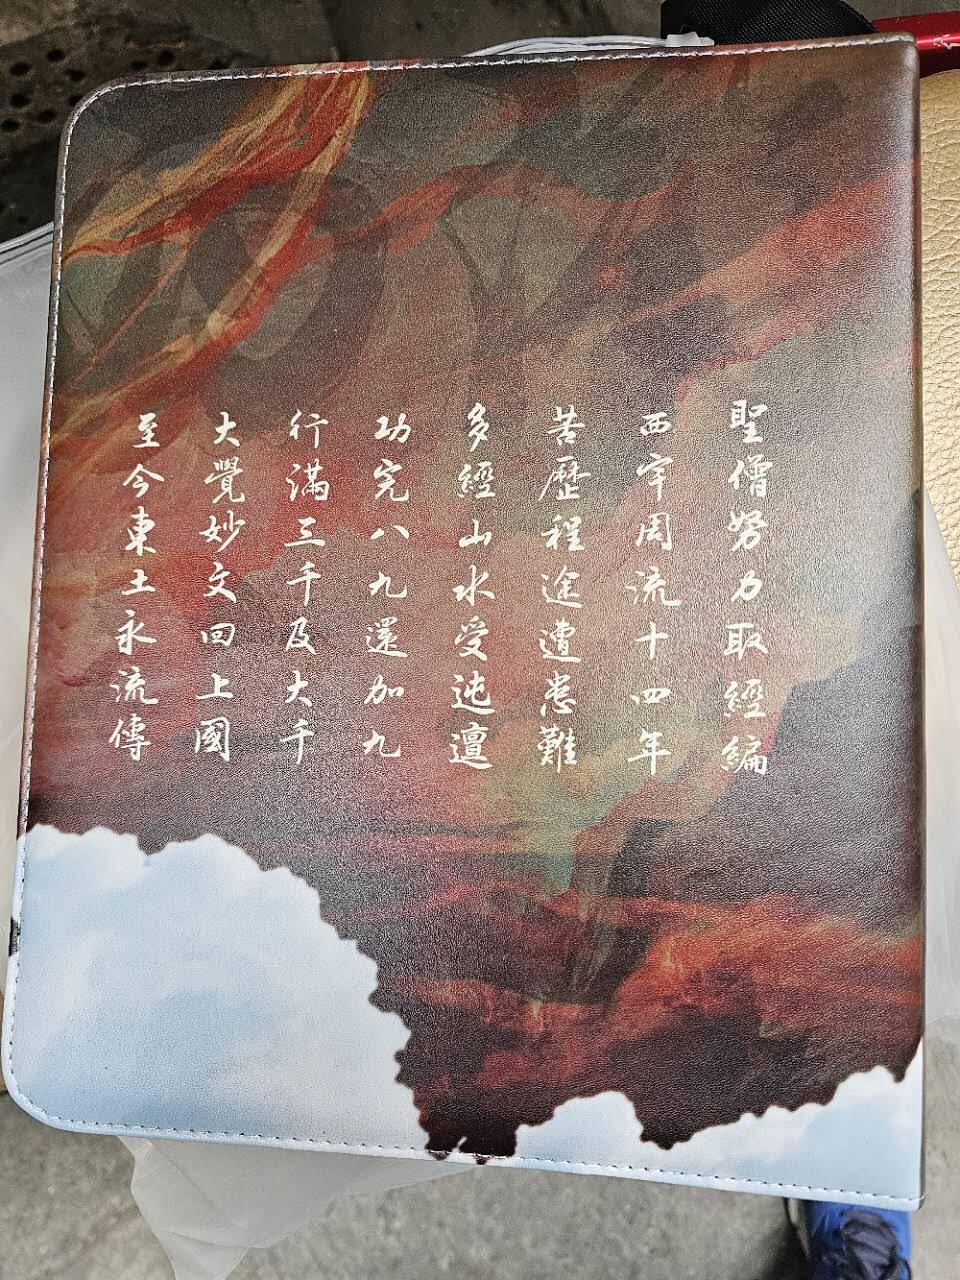 聖僧努力取經編
西宇周流十四年
苦歷程途遭患難
多經山水受迍邅
功完八九還加九
行滿三千及大千
大覺妙文回上國
至今東土永流傳